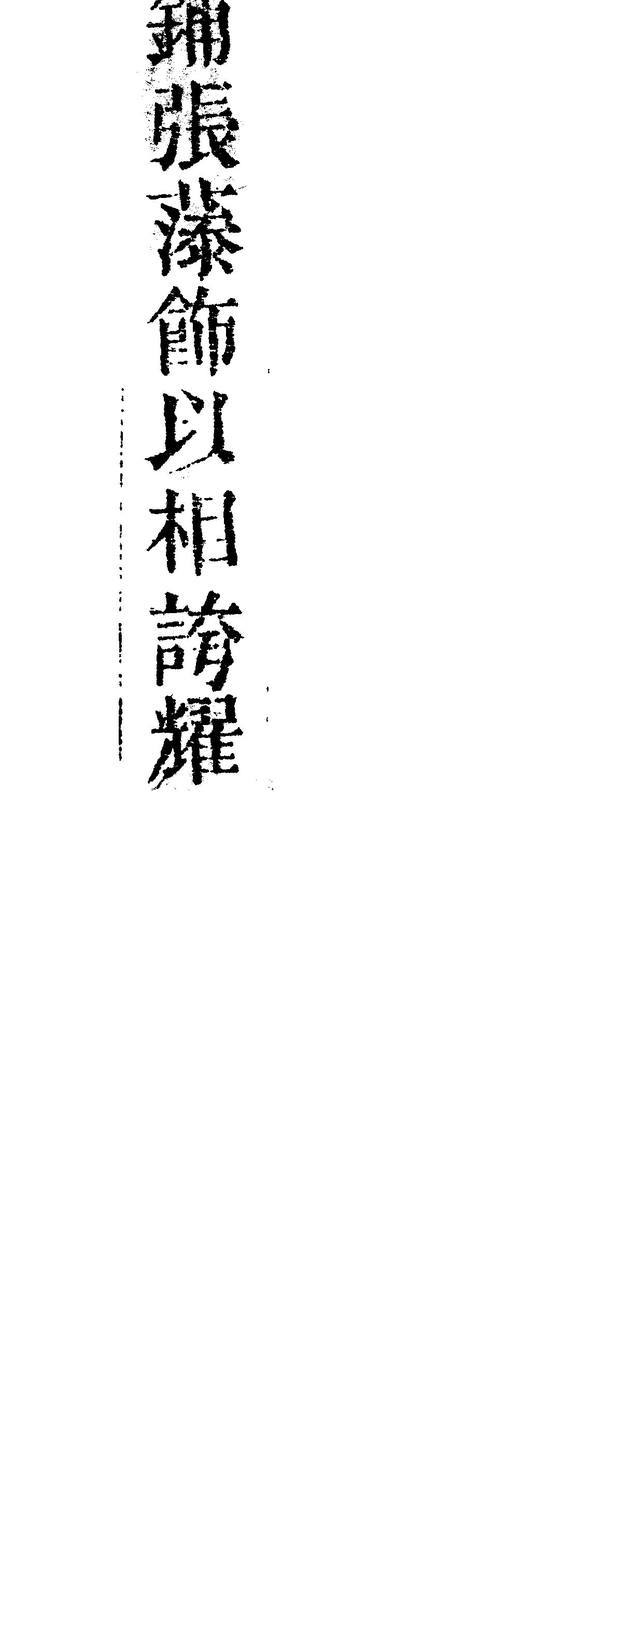 鋪張藻飾以相誇耀